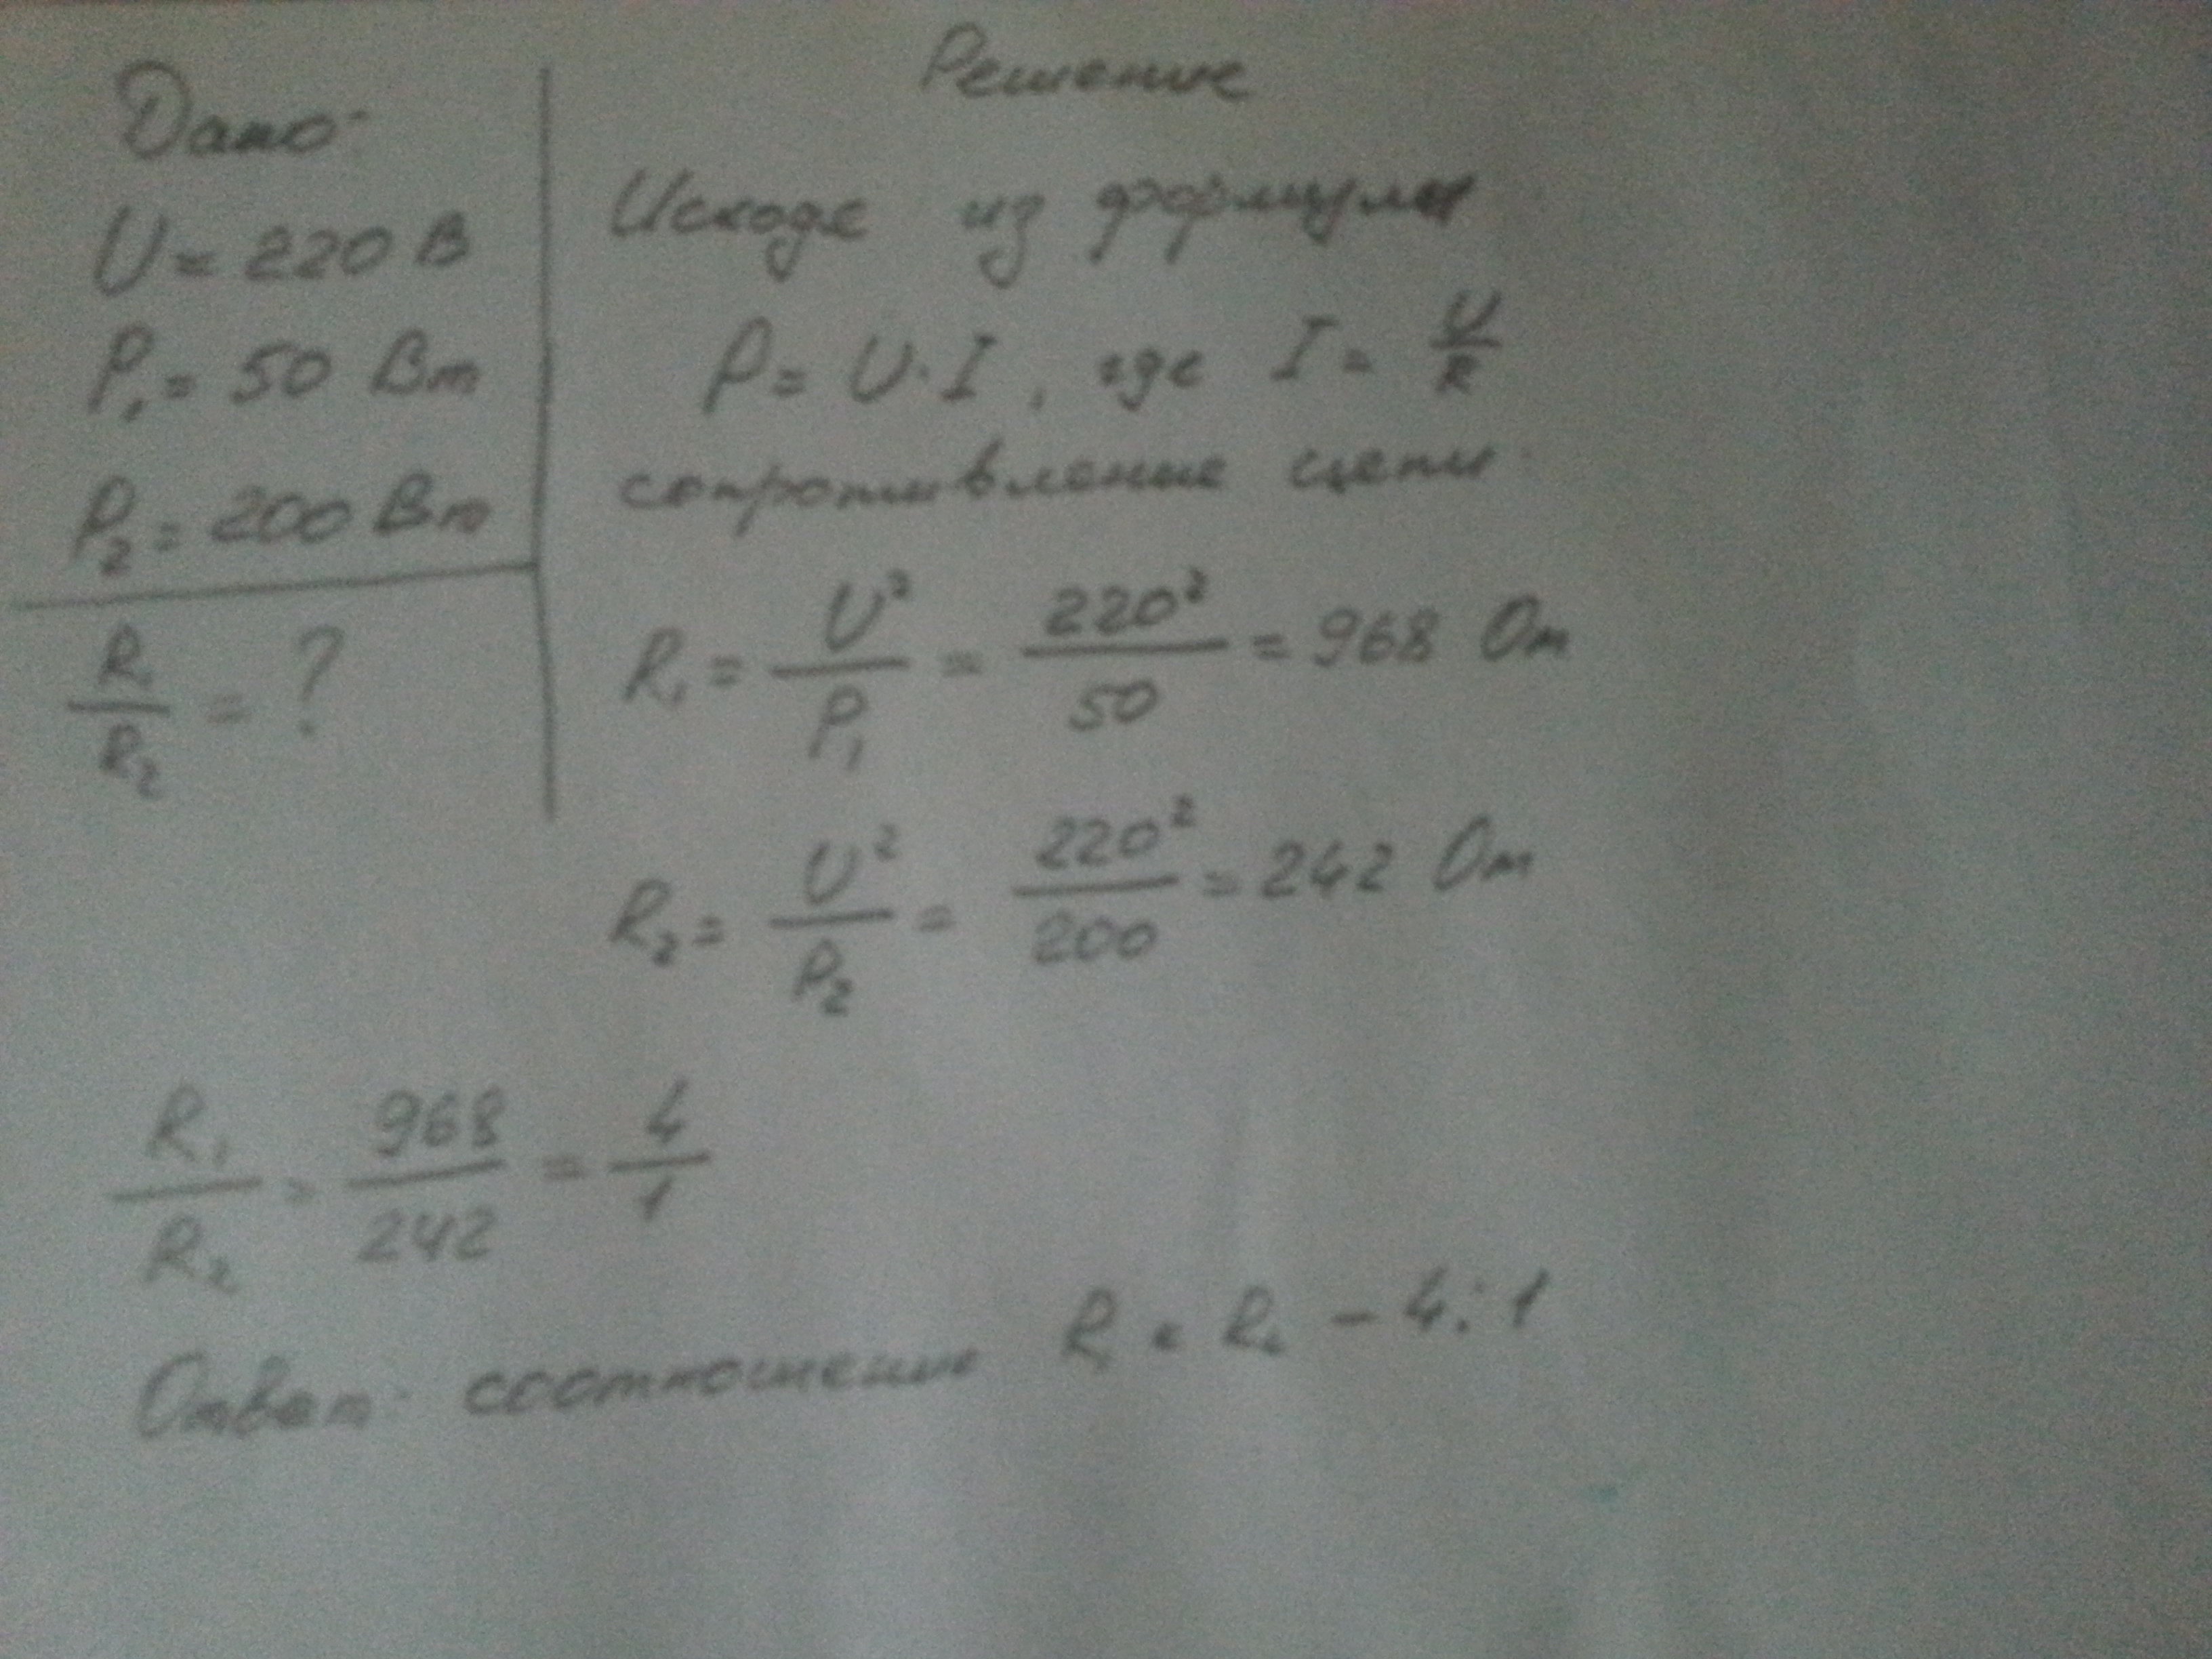 Дано:
U = 220 В
P₁ = 50 Вт
P₂ = 200 Вт
R₁/R₂ = ?
Решение
Исходя из формулы
P = U · I, где I = U/R
сопротивление цепи:
R₁ = U²/P₁ = 220²/50 = 968 Ом
R₂ = U²/P₂ = 220²/200 = 242 Ом
R₁/R₂ = 968/242 = 4/1
Ответ: соотношение R₁ к R₂ – 4:1